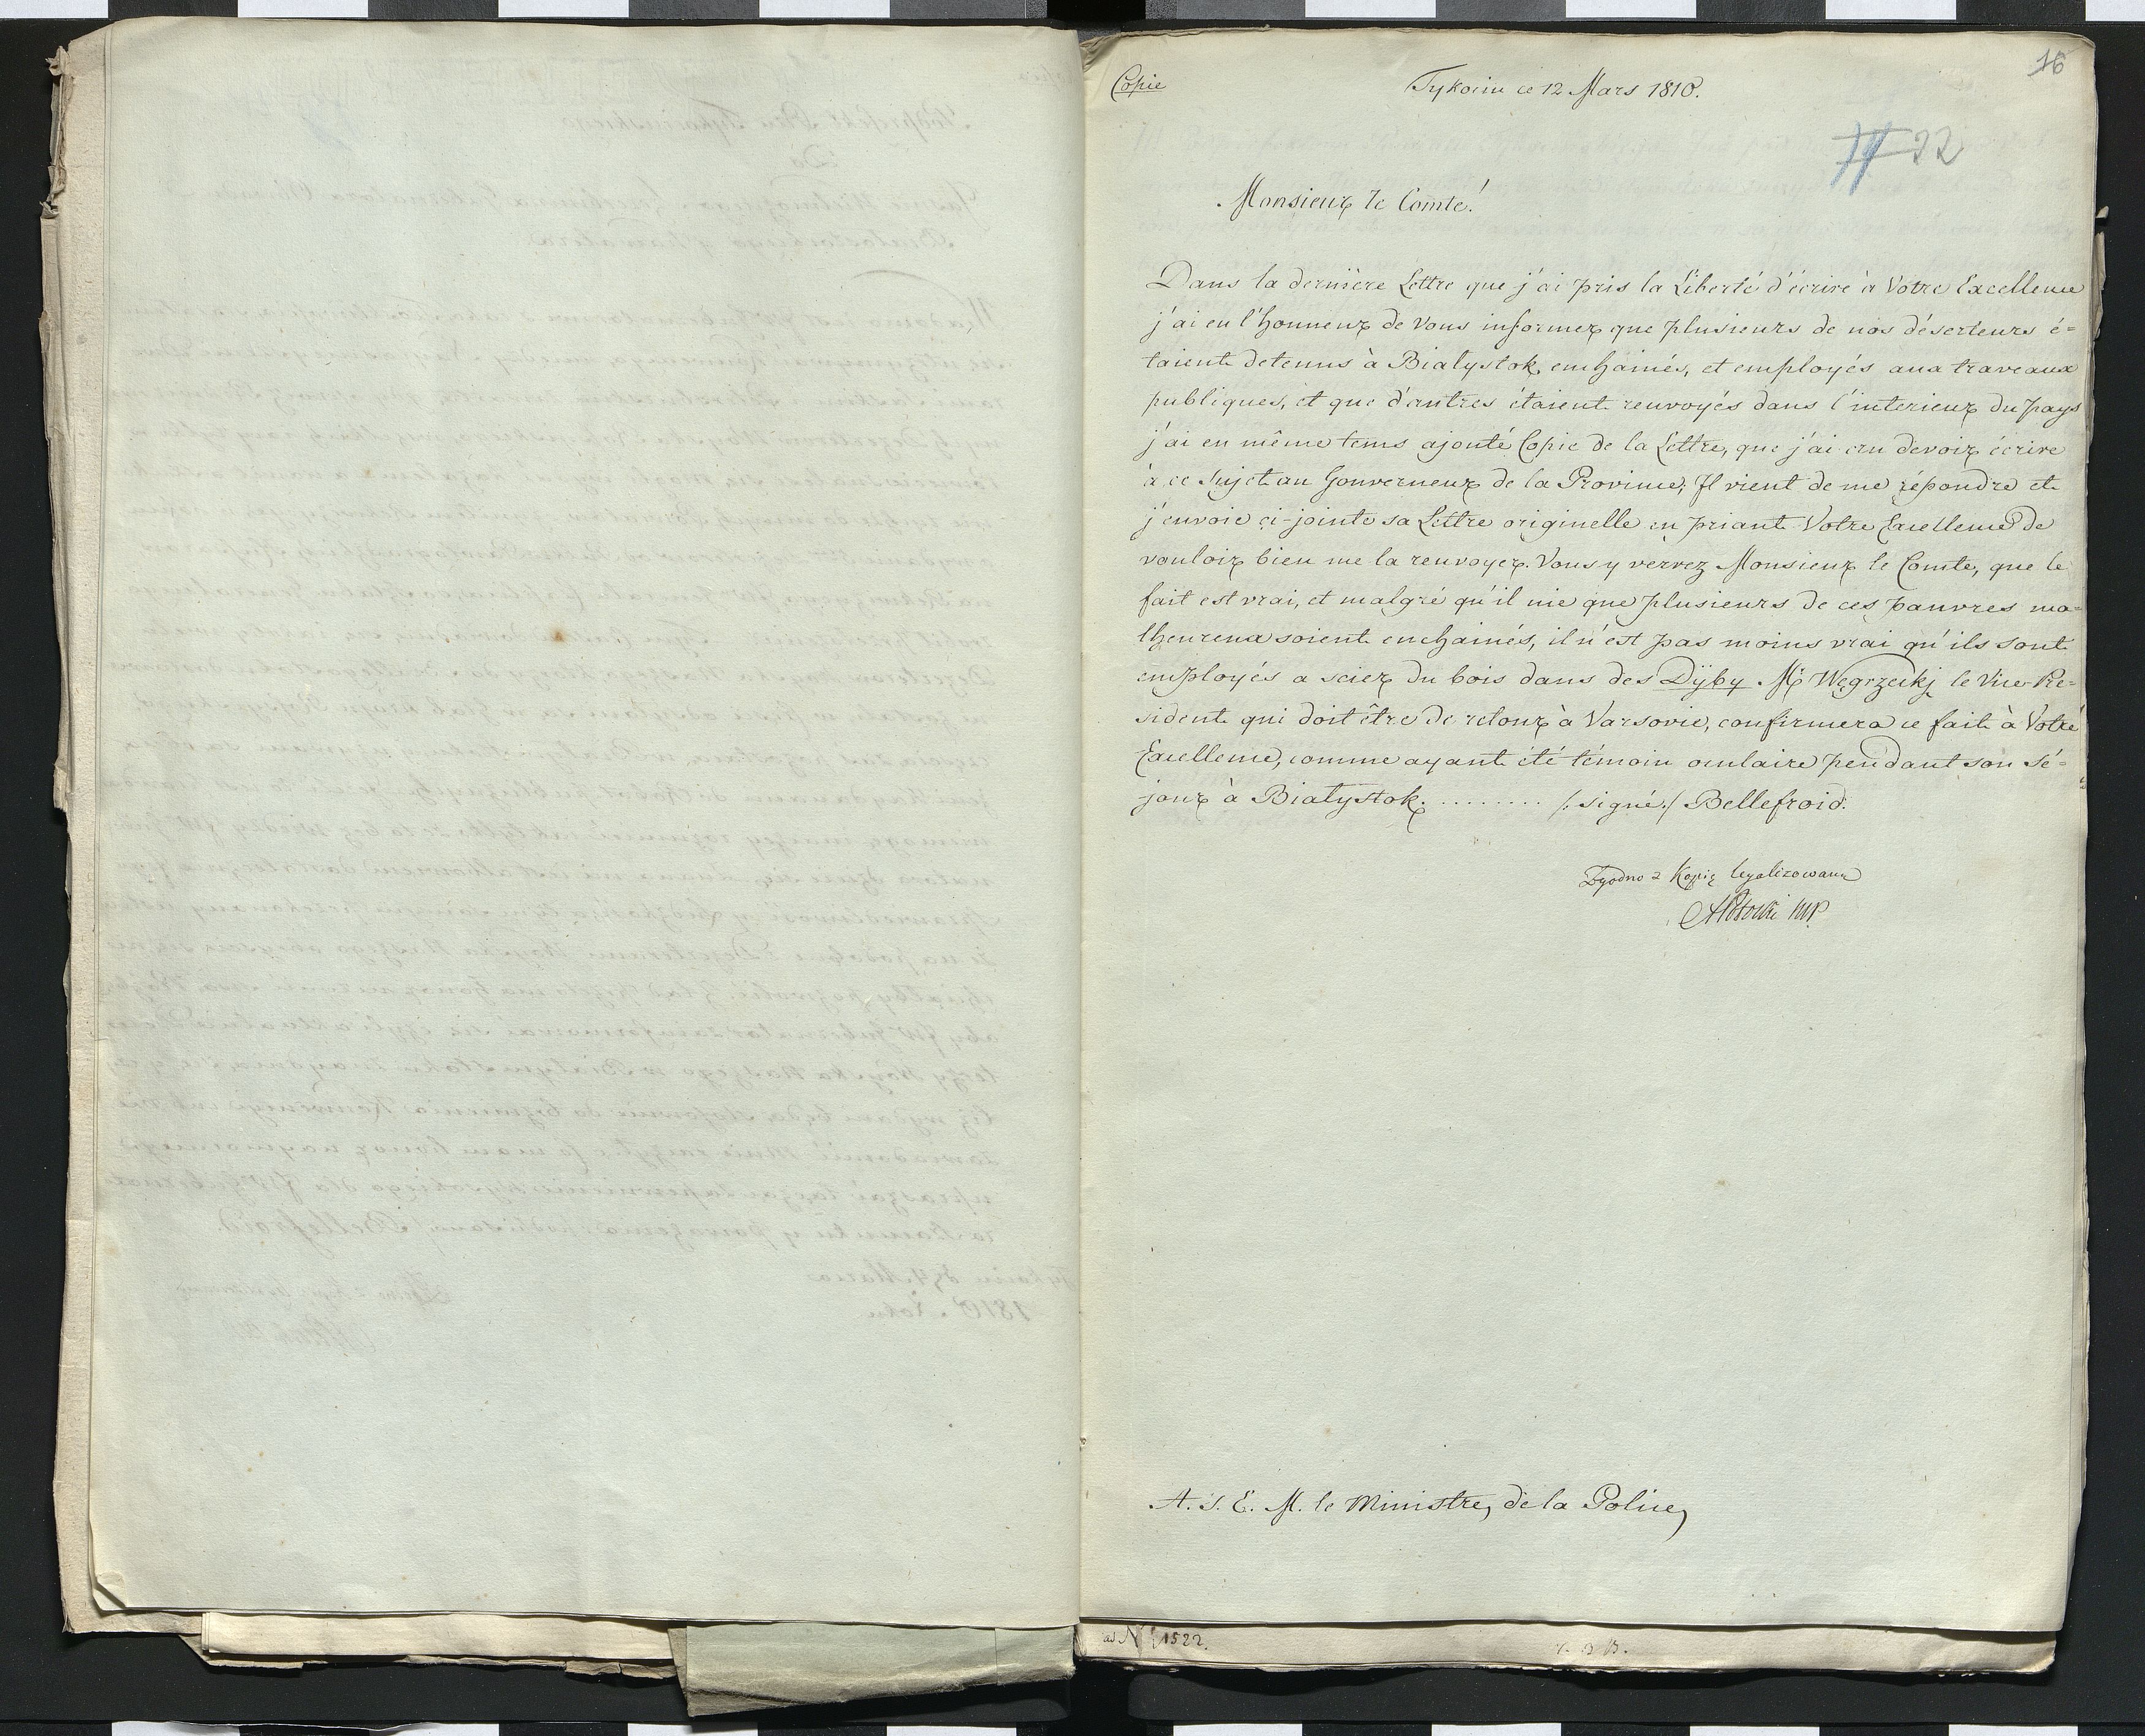 16
Copie
Tykocin ce 12 Mars 1810.
22
Monsieur le Comte!
Dans la dernière Lettre que j'ai pris la Liberté d'écrire à Votre Excellence
j'ai eu l'honneur de Vous informer que plusieurs de nos déserteurs é=
taient detenus à Bialystok, enchainés, et employés aux traveaux
publiques, et que d'autres étaient renvoyés dans l'interieur du pays
j'ai en même tems ajouté Copie de la Lettre, que j'ai cru devoir écrire
à ce Sujet au Gouverneur de la Province; Il vient de me répondre et
j'envoie ci-jointe sa Lettre originelle en priant Votre Excellence de
vouloir bien me la renvoyer. Vous y verrez Monsieur le Comte, que le
fait est vrai, et malgré qu'il nie que plusieurs de ces pauvres ma=
lheureux soient enchainés, il n'est pas moins vrai qu'ils sont
employés a scier du bois dans des Dÿby. Mr Węgrzeckj le Vice-Pré=
sident qui doit être de retour à Varsovie, confirmera ce fait à Votre
Excellence, comme ayant été témoin oculaire pendant son sé=
jour à Białystok. ........ /: signé :/ Bellefroid.
Zgodno z Kopią legalizowaną
APotocki mp
A. S. E. M. le Ministre, de la Police,
ad N 1522.